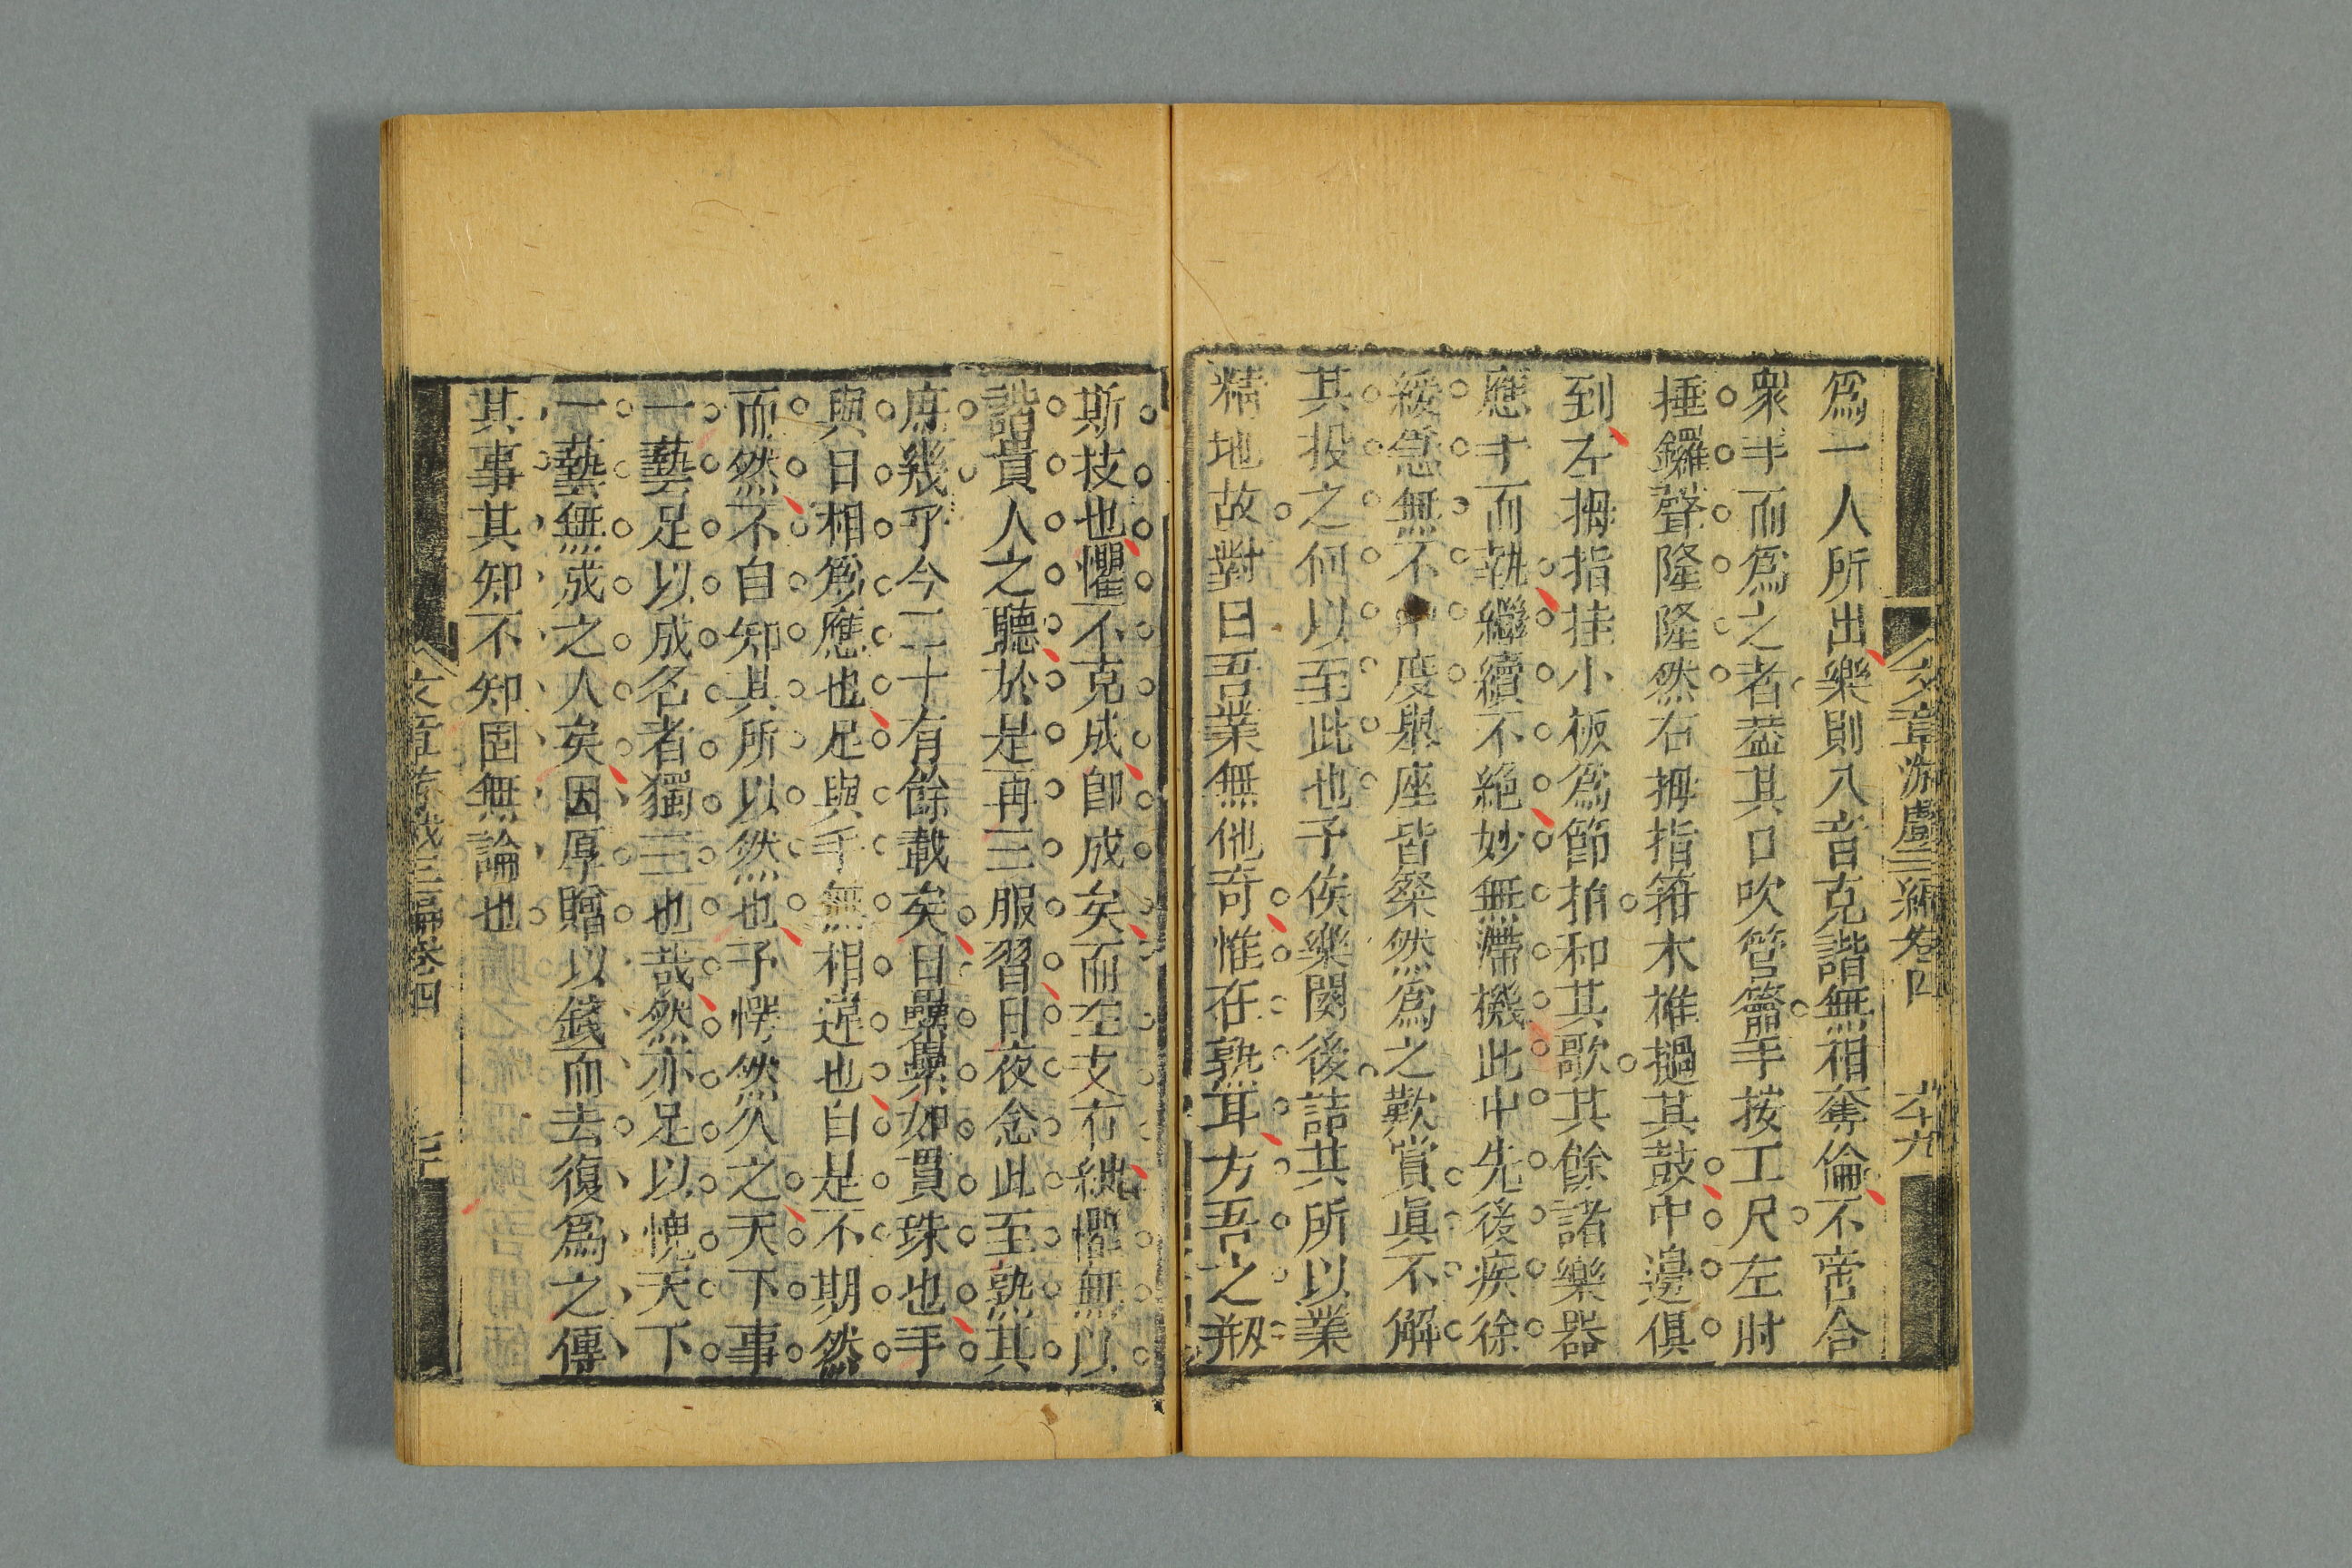 文章游戲三編卷四 六十九
爲一人所出樂則八音克諧無相奪倫不啻合
衆手而爲之者葢其口吹笻籥手按工尺左肘
捶鑼聲隆隆然右拇指箝木椎撾其鼓中邊俱
到左拇指挂小板爲節拍和其歌其餘諸樂器
應手而執繼續不絕妙無滯機此中先後疾徐
緩急無不中度舉座皆粲然爲之歎賞眞不解
其投之何以至此也予俟樂闋後詰其所以業
精地故對曰吾業無他奇惟在熟耳方吾之剏
斯技也懼不克成卽成矣而至支右絀懼無以
諧貴人之聽於是再三服習日夜念此至熟其
庶幾乎今二十有餘載矣日纍纍如貫珠也手
與日相爲應也足與手無相違也自是不期然
而然不自知其所以然也予愕然久之天下事
一藝足以成名者獨三也哉然亦足以愧天下
一藝無成之人矣因厚贈以錢而去復爲之傳
其事其知不知固無論也
文章游戲三編卷四